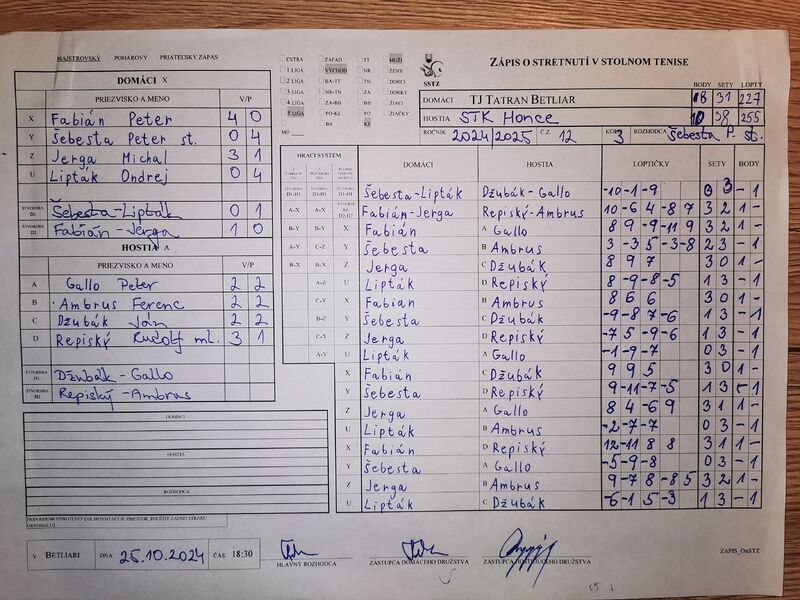 MAJSTROVSKÝ POHÁROVÝ PRIATEĽSKÝ ZÁPAS
EXTRA ZÁPAD TT MUŽI
1.LIGA VÝCHOD NR ŽENY
2.LIGA BA-TT TN DORCI
3.LIGA NR-TN ZA DORKY
4.LIGA ZA-BB BB ŽIACI
5.LIGA PO-KE PO ŽIAČKY
BA KE
MO
SSTZ
ZÁPIS O STRETNUTÍ V STOLNOM TENISE
BODY SETY LOPTY
DOMÁCI TJ TATRAN BETLIAR 8 31 227
HOSTIA STK Honce 10 38 255
ROČNÍK 2024/2025 Č.Z. 12 KOLO 3 ROZHODCA Šebesta P. st.
DOMÁCI X
PRIEZVISKO A MENO V/P
X Fabián Peter 4 0
Y Šebesta Peter st. 0 4
Z Jerga Michal 3 1
U Lipták Ondrej 0 4
ŠTVORHRA D1 Šebesta-Lipták 0 1
ŠTVORHRA D2 Fabián-Jerga 1 0
HOSTIA A
PRIEZVISKO A MENO V/P
A Gallo Peter 2 2
B Ambrus Ferenc 2 2
C Džubák Ján 2 2
D Repiský Rudolf ml. 3 1
ŠTVORHRA H1 Džubák-Gallo
ŠTVORHRA H2 Repiský-Ambrus
DOMÁCI
HOSTIA
ROZHODCA
PRIPOMIENKY/PROTESTY (AK NEPOSTAČUJE PRIESTOR, POUŽITE ZADNÚ STRANU ORIGINÁLU)
HRACÍ SYSTÉM DOMÁCI HOSTIA LOPTIČKY SETY BODY
ŠTVORHRA D1-H1 ŠTVORHRA D1-H1 ŠTVORHRA D1-H1 Šebesta-Lipták Džubák-Gallo -10 -1 -9 0 3 - 1
A-X A-X ŠTVORHRA D2-H2 Fabián-Jerga Repiský-Ambrus 10 -6 4 -8 7 3 2 1 -
B-Y B-Y X Fabián A Gallo 8 9 -9 -11 9 3 2 1 -
A-Y C-Z Y Šebesta B Ambrus 3 -3 5 -3 -8 2 3 - 1
B-X B-X Z Jerga C Džubák 8 9 7 3 0 1 -
A-Z U Lipták D Repiský 8 -9 -8 -5 1 3 - 1
C-Y X Fabian B Ambrus 8 6 6 3 0 1 -
B-Z Y Šebesta C Džubák -9 -8 7 -6 1 3 - 1
C-X Z Jerga D Repiský -7 5 -9 -6 1 3 - 1
A-Y U Lipták A Gallo -1 -9 -7 0 3 - 1
X Fabián C Džubák 9 9 5 3 0 1 -
Y Šebesta D Repiský 9 -11 -7 -5 1 3 - 1
Z Jerga A Gallo 8 4 -6 9 3 1 1 -
U Lipták B Ambrus -2 -7 -7 0 3 - 1
X Fabián D Repiský 12 -11 8 8 3 1 1 -
Y Šebesta A Gallo -5 -9 -8 0 3 - 1
Z Jerga B Ambrus 9 -7 8 -8 5 3 2 1 -
U Lipták C Džubák -6 -1 5 -3 1 3 - 1
V BETLIARI DŇA: 25.10.2024 ČAS: 18:30
HLAVNÝ ROZHODCA ZÁSTUPCA DOMÁCEHO DRUŽSTVA ZÁSTUPCA HOSŤUJÚCEHO DRUŽSTVA
ZAPIS_OnSTZ